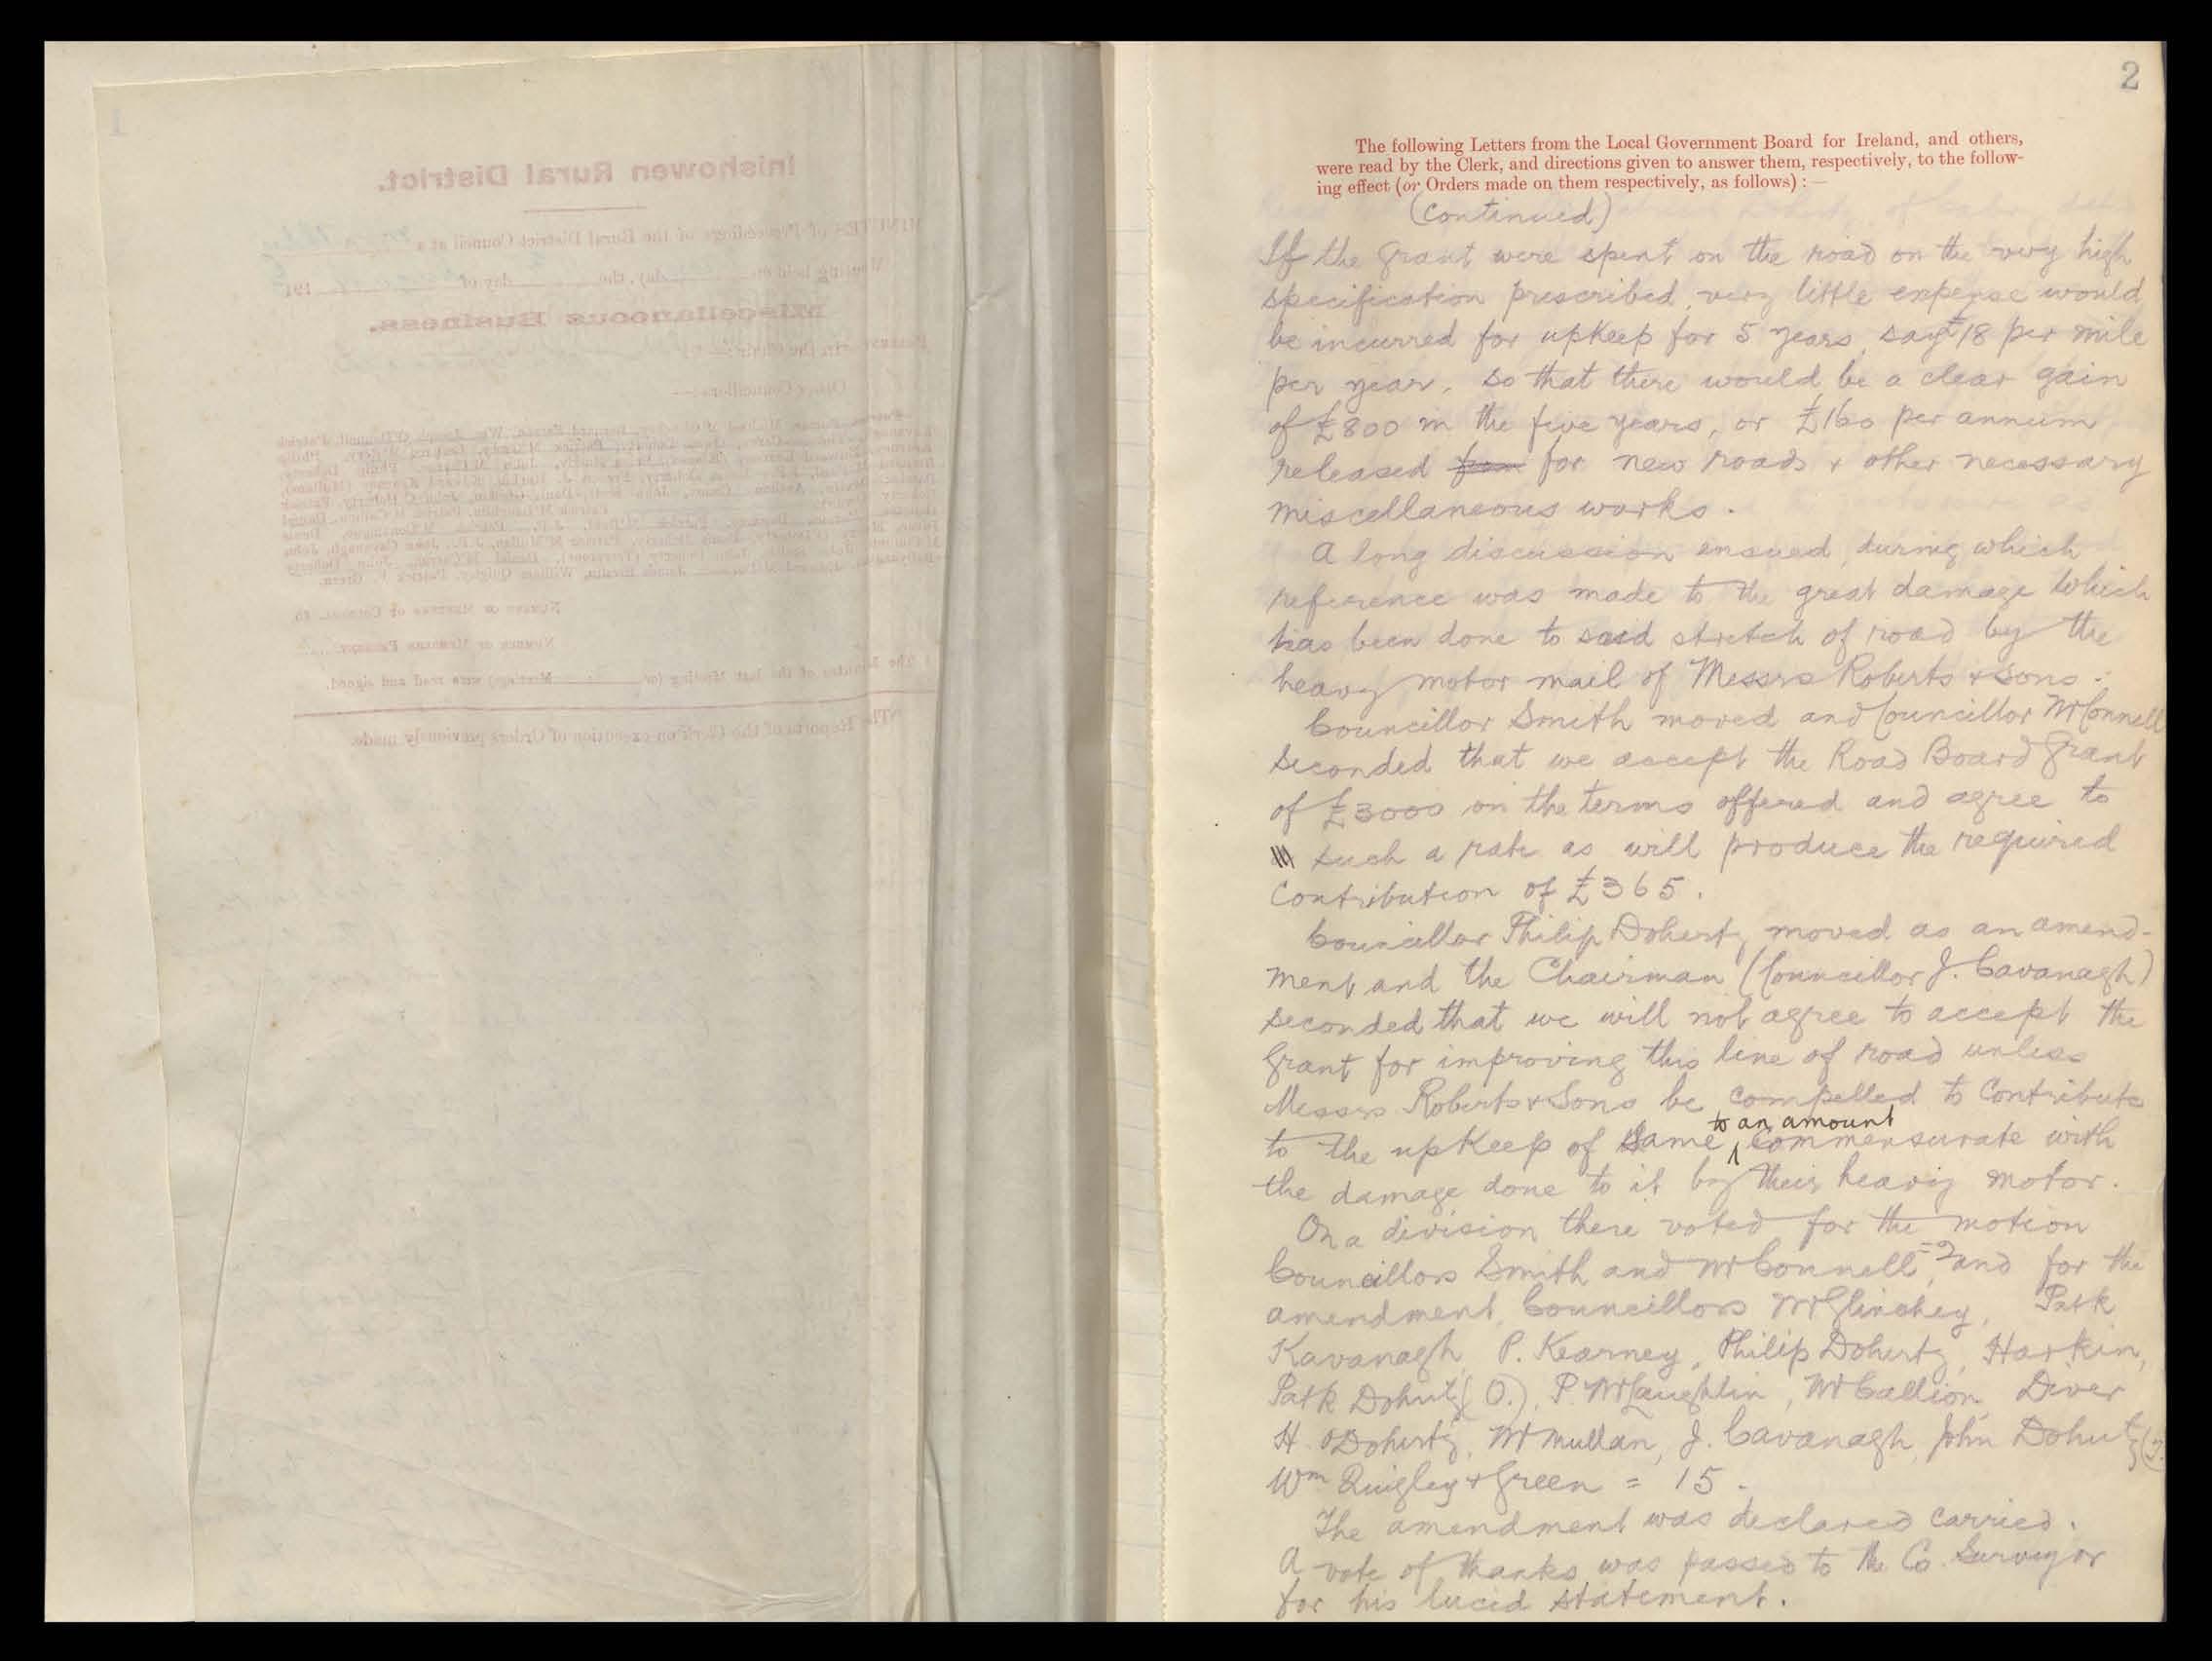 2
The following Letters from the Local Government Board for Ireland, and others,
were read by the Clerk, and directions given to answer them, respectively, to the follow-
ing effect (or Orders made on them respectively, as follows) :—
(Continued)
If the Grant were spent on the road on the very high
specification prescribed very little expense would
be incurred for upkeep for 5 years, say £18 per mile
per year, so that there would be a clear gain
of £800 in the five years, or £160 per annum
released for new roads & other necessary
miscellaneous works.
A long discussion ensued, during which
reference was made to the great damage which
has been done to said stretch of road by the
heavy motor mail of Messrs Roberts & Sons.
Councillor Smith moved and Councillor McConnell
seconded that we accept the Road Board Grant
of £3000 on the terms offered and agree to
such a rate as will produce the required
Contribution of £365.
Councillor Philip Doherty moved as an amend-
ment and the Chairman (Councillor J. Cavanagh)
seconded that we will not agree to accept the
Grant for improving this line of road unless
Messrs Roberts & Sons be compelled to Contribute
to the upkeep of same to an amount Commensurate with
the damage done to it by their heavy motor.
On a division there voted for the motion
Councillors Smith and McConnell = 2 and for the
amendment, Councillors McGlinchey, Patk
Kavanagh, P. Kearney, Philip Doherty, Harkin,
Patk Doherty (O.), P. McLaughlin, McCallion, Diver
H. O'Doherty, McMullan, J. Cavanagh, John Doherty
Wm Quigley & Green = 15.
The amendment was declared carried.
A vote of thanks was passed to the Co. Surveyor
for his lucid statement.